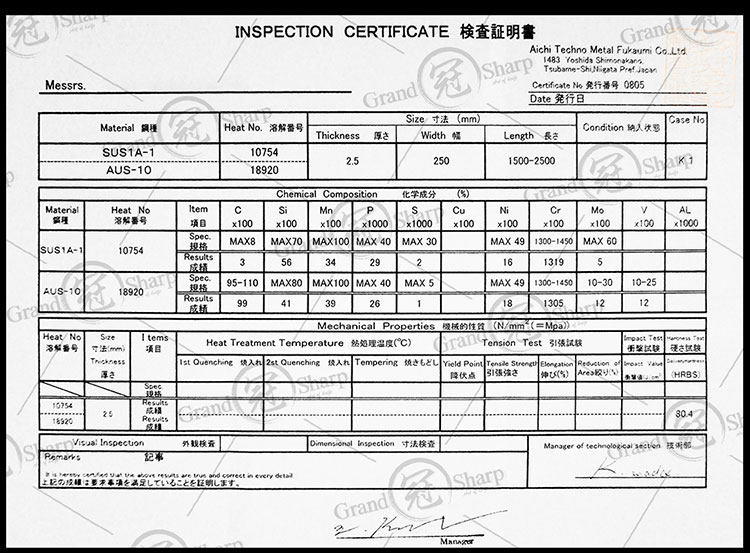 INSPECTION CERTIFICATE 検査証明書
Aichi Techno Metal Fukaumi Co.,Ltd.
1483 Yoshida Shimonakano,
Tsubame-Shi,Niigata Pref.Japan
Messrs.
Certificate No 発行番号 0805
Date 発行日
Material 鋼種 Heat No. 溶解番号 Size 寸法 (mm) Condition 納入状態 Case No
Thickness 厚さ Width 幅 Length 長さ
SUS1A-1 10754 2.5 250 1500-2500 K 1
AUS-10 18920
Chemical Composition 化学成分 (%)
Material 鋼種 Heat No 溶解番号 Item 項目 C x100 Si x100 Mn x100 P x1000 S x1000 Cu x100 Ni x100 Cr x100 Mo x100 V x100 AL x1000
SUS1A-1 10754 Spec. 規格 MAX8 MAX70 MAX100 MAX 40 MAX 30 MAX 49 1300-1450 MAX 60
Results 成績 3 56 34 29 2 16 1319 5
AUS-10 18920 Spec. 規格 95-110 MAX80 MAX100 MAX 40 MAX 5 MAX 49 1300-1450 10-30 10-25
Results 成績 99 41 39 26 1 18 1305 12 12
Mechanical Properties 機械的性質 (N/mm²(=Mpa))
Heat No 溶解番号 Size 寸法(mm) Thickness 厚さ Items 項目 Heat Treatment Temperature 熱処理温度(℃) Tension Test 引張試験 Impact Test 衝撃試験 Hardness Test 硬さ試験
1st Quenching 焼入れ 2st Quenching 焼入れ Tempering 焼きもどし Yield Point 降伏点 Tensile Strength 引張強さ Elongation 伸び(%) Reduction of Area絞り(%) Impact Value (HRBS)
Spec 規格
10754 2.5 Results 成績
18920 Results 成績 80.4
Visual Inspection 外観検査 Dimensional Inspection 寸法検査 Manager of technological section 技術部
Remarks 記事
It is hereby certified that the above results are true and correct in every detail
上記の成績は要求事項を満足していることを証明します。
Manager
Grand 冠 Sharp